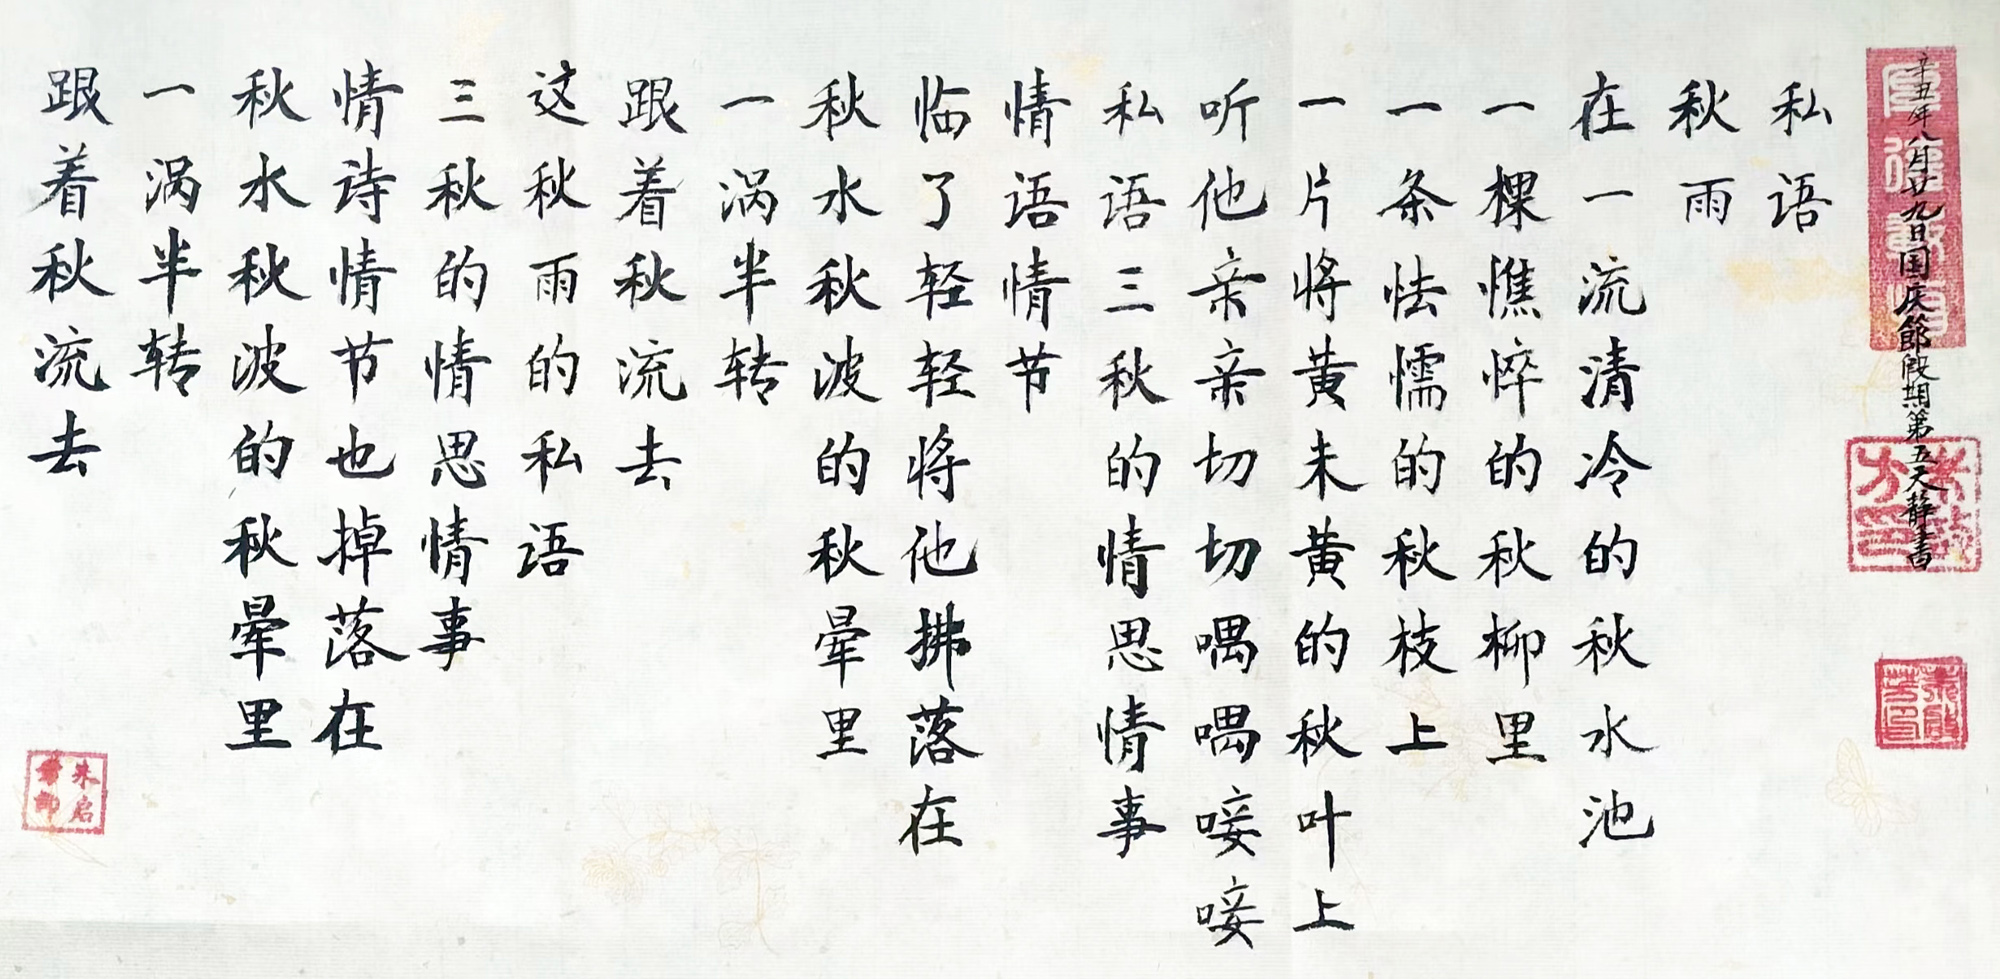 辛丑年八月廿九日国庆節假期第五天静書
私语
秋雨
在一流清冷的秋水池
一棵憔悴的秋柳里
一条怯懦的秋枝上
一片将黄未黄的秋叶上
听他亲亲切切喁喁唼唼
私语三秋的情思情事
情语情节
临了轻轻将他拂落在
秋水秋波的秋晕里
一涡半转
跟着秋流去
这秋雨的私语
三秋的情思情事
情诗情节也掉落在
秋水秋波的秋晕里
一涡半转
跟着秋流去
朱启